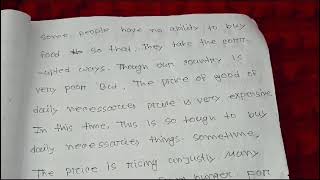 some people have no ability to buy
food. so that, They take the corr-
upted ways. Though our country is
very poor. But, The price of good of
daily necessaries price is very expensive
In this time, This is so tough to buy
daily necessaries things. sometime,
The price is rising unjustly many
hunger. For